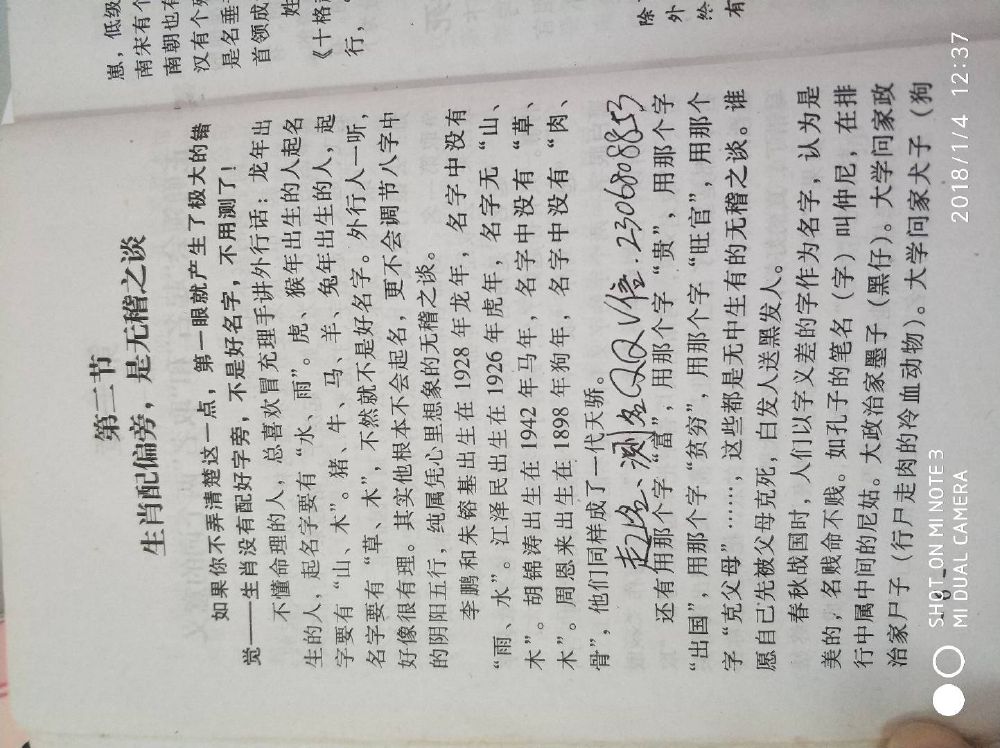 崽，低级
南宋有个
南朝也有
汉有个
是名垂
首领成
姓
《十格
行，
除
外
有
第二节
生肖配偏旁，是无稽之谈
如果你不弄清楚这一点，第一眼就产生了极大的错
觉——生肖没有配好字旁，不是好名字，不用测了！
不懂命理的人，总喜欢冒充理手讲外行话：龙年出
生的人，起名字要有“水、雨”。虎、猴年出生的人起名
字要有“山、木”。猪、牛、马、羊、兔年出生的人，起
名字要有“草、木”，不然就不是好名字。外行人一听，
好像很有理。其实他根本不会起名，更不会调节八字中
的阴阳五行，纯属凭心里想象的无稽之谈。
李鹏和朱镕基出生在 1928 年龙年，名字中没有
“雨、水”。江泽民出生在 1926 年虎年，名字无“山、
木”。胡锦涛出生在 1942 年马年，名字中没有“草、
木”。周恩来出生在 1898 年狗年，名字中没有“肉、
骨”，他们同样成了一代天骄。
起名、测名QQV信.2306800885
还有用那个字“富”，用那个字“贵”，用那个字
“出国”，用那个字“贫穷”，用那个字“旺官”，用那个
字“克父母”……，这些都是无中生有的无稽之谈。谁
愿自己先被父母克死，白发人送黑发人。
春秋战国时，人们以字义差的字作为名字，认为是
美的，名贱命不贱。如孔子的笔名（字）叫仲尼，在排
行中属中间的尼姑。大政治家墨子（黑仔）。大学问家政
治家尸子（行尸走肉的冷血动物）。大学问家犬子（狗
SHOT ON MI NOTE 3
MI DUAL CAMERA
2018/1/4 12:37